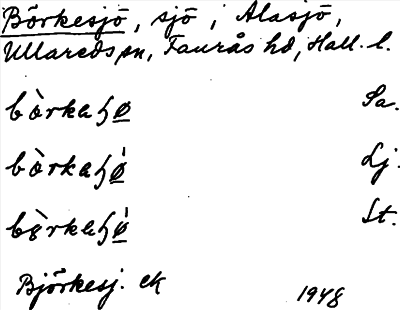 Börkesjö, sjö, i Alasjö,
Ullareds sn, Faurås hd, Hall. l.
bòrkaɧø̲ Sa.
bòrkaɧǿ̲ Lj.
bòrkaɧǿ̲ St.
Björkesj. ek
1948